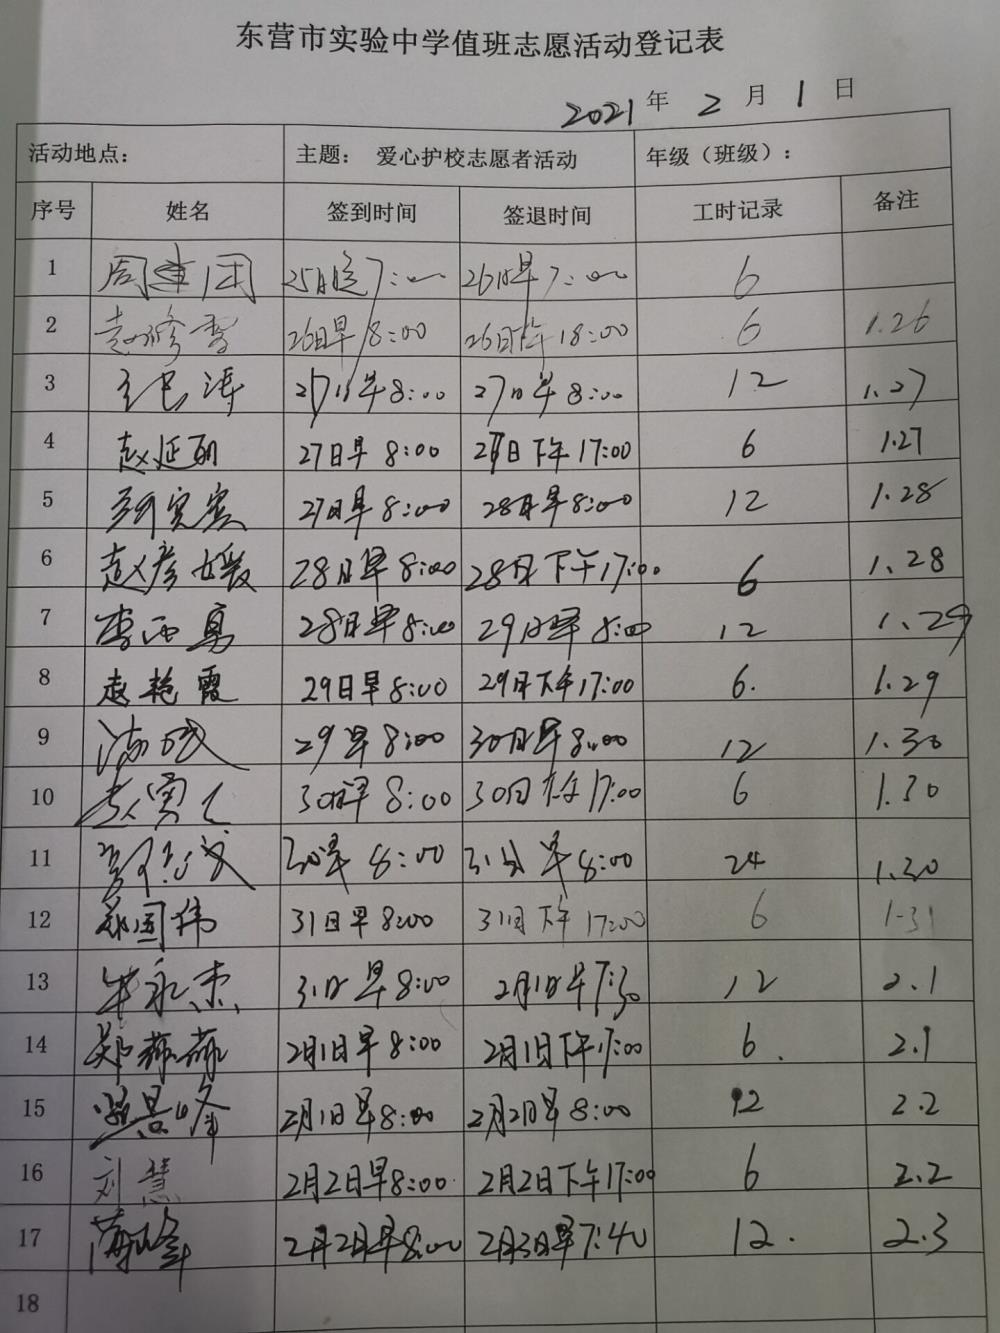 东营市实验中学值班志愿活动登记表
2021年 2月 1日
活动地点： 主题： 爱心护校志愿者活动 年级（班级）：
序号 姓名 签到时间 签退时间 工时记录 备注
1 周建国 25日晚7:00 26日早7:00 6
2 26日早8:00 26日下午18:00 6 1.26
3 27日早8:00 12 1.27
4 赵延丽 27日早8:00 27日下午17:00 6 1.27
5 27日早8:00 28日早8:00 12 1.28
6 赵彦媛 28日早8:00 28日下午17:00 6 1.28
7 李西勇 28日早8:00 29日早8:00 12 1.29
8 赵艳霞 29日早8:00 29日下午17:00 6. 1.29
9 29早8:00 30日早8:00 12 1.30
10 30日早8:00 30日下午17:00 6 1.30
11 30早8:00 31日早8:00 24 1.30
12 31日早8:00 31日下午17:00 6 1-31
13 31日早8:00 2月1日早7:30 12 2.1
14 2月1日早8:00 2月1日下午17:00 6. 2.1
15 2月1日早8:00 2月2日早8:00 12 2.2
16 刘慧 2月2日早8:00 2月2日下午17:00 6 2.2
17 2月2日早8:00 2月3日早7:40 12. 2.3
18